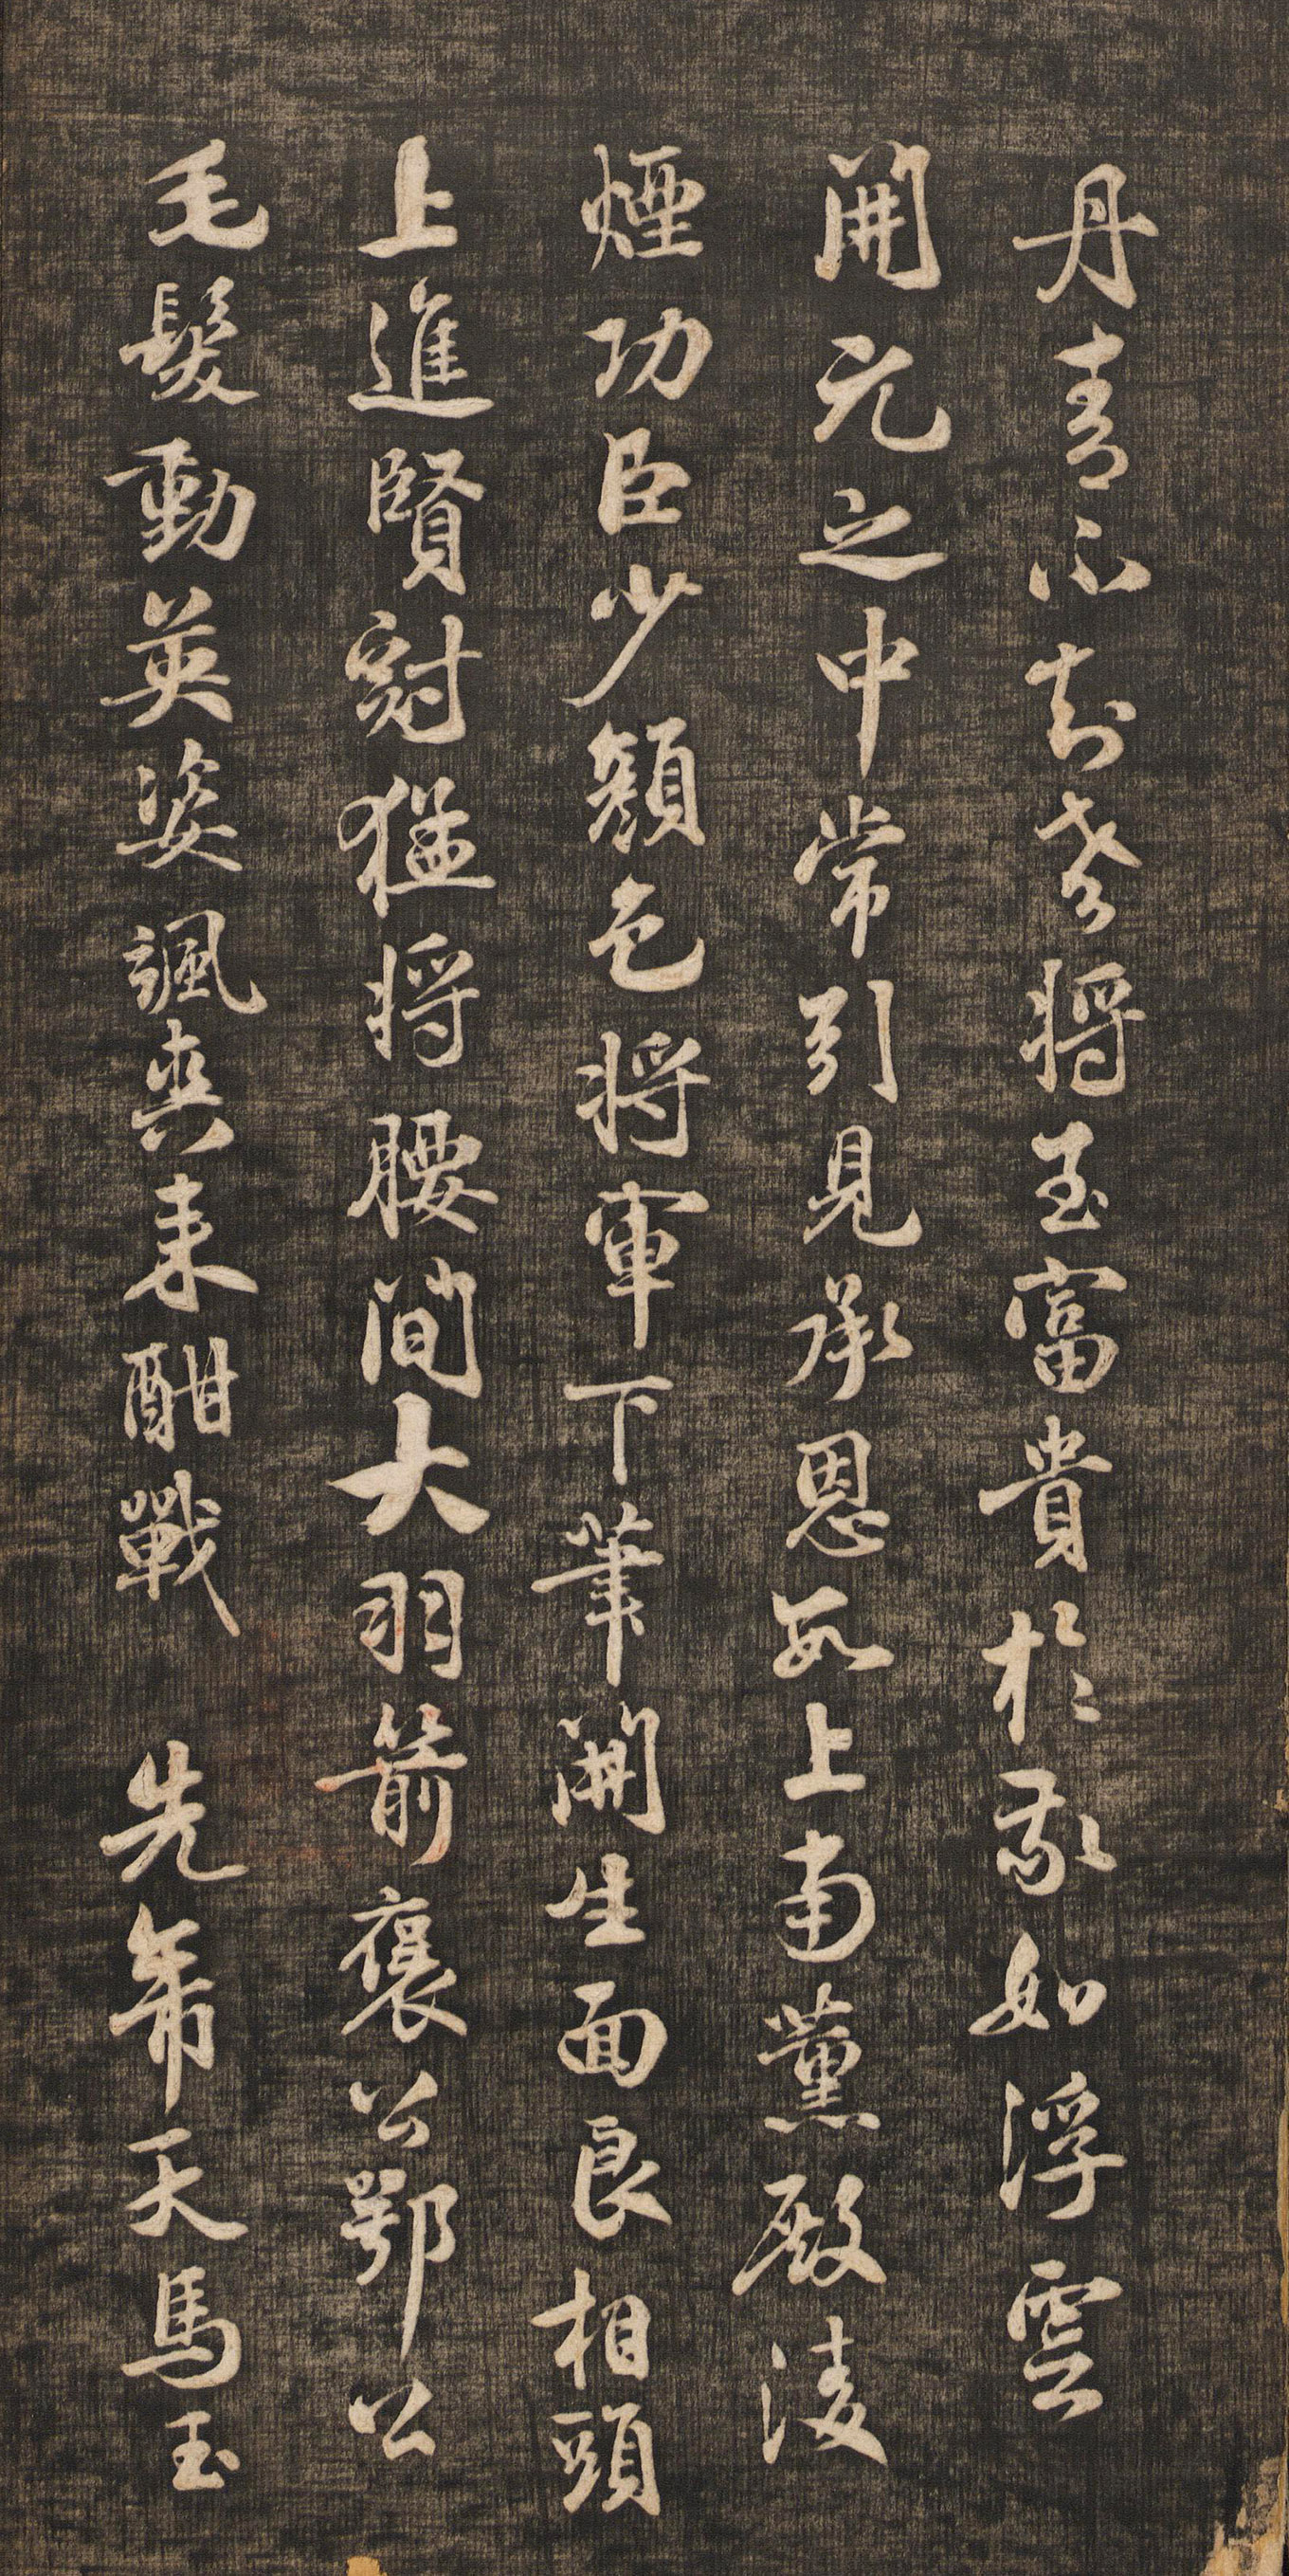 丹青不知老將至富貴於我如浮雲
開元之中常引見承恩數上南薰殿淩
煙功臣少顏色將軍下筆開生面良相頭
上進賢冠猛將腰間大羽箭褒公鄂公
毛髮動英姿颯爽来酣戰 先帝天馬玉